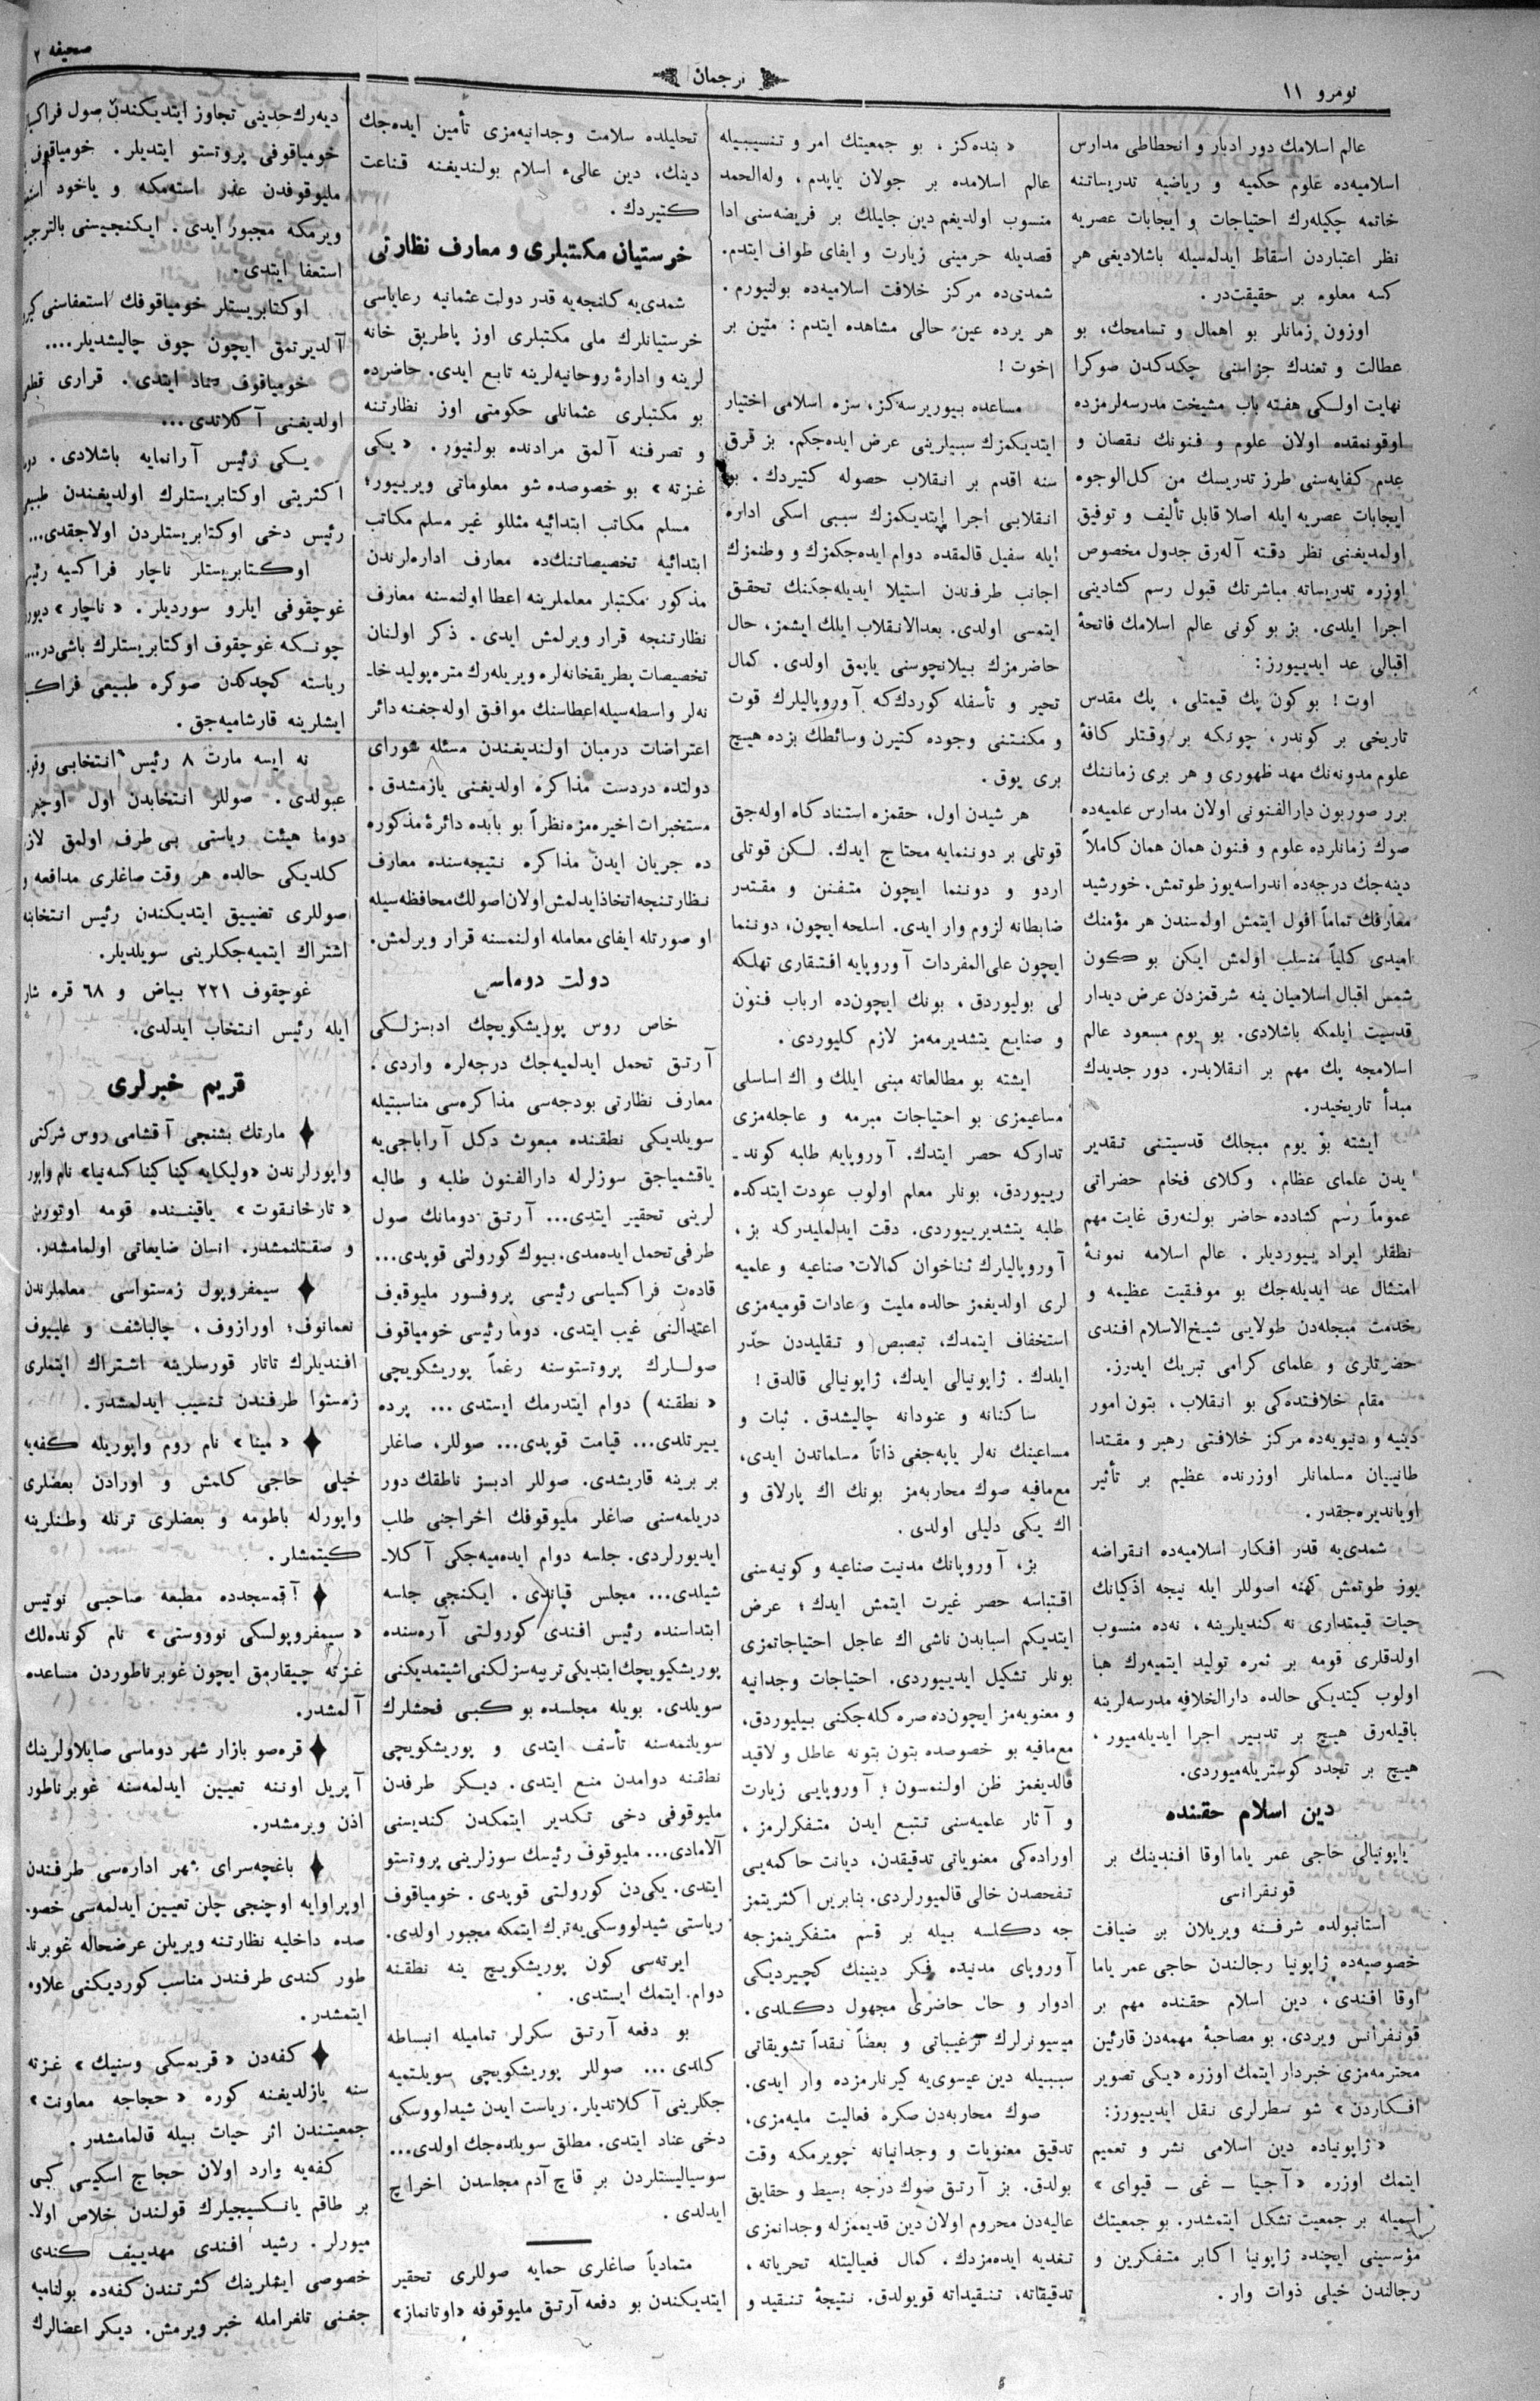 نومرو ١١
ترجمان
صحيفه ٢
عالم اسلامك دور ادبار و انحطاطى مدارس
اسلاميه‌ده علوم حكميه و رياضيه تدريساتنه
خاتمه چكيله‌رك احتياجات و ايجابات عصريه
نظر اعتباردن اسقاط ايدلمسيله باشلاديغى هر
كسه معلوم بر حقيقت‌در.
اوزون زمانلر بو اهمال و تسامحك، بو
عطالت و تعندك جزاسنى چكدكدن صوكرا
نهايت اولكى هفته باب مشيخت مدرسه‌لرمزده
اوقونمقده اولان علوم و فنونك نقصان و
عدم كفايه‌سنى طرز تدريسك من كل‌الوجوه
ايجابات عصريه ايله اصلا قابل تأليف و توفيق
اولمديغنى نظر دقته آله‌رق جدول مخصوص
اوزره تدريساته مباشرتك قبول رسم كشادينى
اجرا ايلدى. بز بو كونى عالم اسلامك فاتحهٔ
اقبالى عد ايدييورز:
اوت! بو كون پك قيمتلى، پك مقدس
تاريخى بر كوندر، چونكه بر وقتلر كافهٔ
علوم مدونه‌نك مهد ظهورى و هر برى زماننك
برر صوربون دارالفنونى اولان مدارس علميه‌ده
صوك زمانلرده علوم و فنون همان همان كاملاً
دينه‌جك درجه‌ده اندراسه يوز طوتمش. خورشيد
معارفك تماماً افول ايتمش اولمسندن هر مؤمنك
اميدى كلياً منسلب اولمش ايكن بو كون
شمس اقبال اسلاميان ينه شرقمزدن عرض ديدار
قدسيت ايلمكه باشلادى. بو يوم مسعود عالم
اسلامجه پك مهم بر انقلابدر. دور جديدك
مبدأ تاريخيدر.
ايشته بو يوم مبجلك قدسيتنى تقدير
يدن علماى عظام، وكلاى فخام حضراتى
عموماً رسم كشادده حاضر بولنه‌رق غايت مهم
نطقلر ايراد بيورديلر. عالم اسلامه نمونهٔ
امتثال عد ايديله‌جك بو موفقيت عظيمه و
خدمت مبجله‌دن طولايى شيخ‌الاسلام افندى
حضرتلرى و علماى كرامى تبريك ايدرز.
مقام خلافتده‌كى بو انقلاب، بتون امور
دينيه و دنيويه‌ده مركز خلافتى رهبر و مقتدا
طانييان مسلمانلر اوزرنده عظيم بر تأثير
اوياندیره‌جقدر.
شمدى‌يه قدر افكار اسلاميه‌ده انقراضه
يوز طوتمش كهنه اصوللر ايله نيجه اذكيانك
حيات قيمتدارى نه كنديلرينه، نه‌ده منسوب
اولدقلرى قومه بر ثمره توليد ايتميه‌رك هبا
اولوب كيتديكى حالده دارالخلافه مدرسه‌لرينه
باقيله‌رق هيچ بر تدبير اجرا ايديله‌ميور،
هيچ بر تجدد كوستريله‌ميوردى.
دين اسلام حقنده
ياپونيالى حاجى عمر ياما اوقا افندينك بر
قونفرانسى
استانبولده شرفنه ويريلان بر ضيافت
خصوصيه‌ده ژاپونيا رجالندن حاجى عمر ياما
اوقا افندى، دين اسلام حقنده مهم بر
قونفرانس ويردى. بو مصاحبهٔ مهمه‌دن قارئين
محترمه‌مزى خبردار ايتمك اوزره «يكى تصوير
افكاردن» شو سطرلرى نقل ايدييورز:
«ژاپونياده دين اسلامى نشر و تعميم
ايتمك اوزره «آجيا – غى – قيواى»
اسميله بر جمعيت تشكل ايتمشدر. بو جمعيتك
مؤسسينى ايچنده ژاپونيا اكابر متفكرين و
رجالندن خيلى ذوات وار.
«بنده‌كز، بو جمعيتك امر و تنسيبيله
عالم اسلامده بر جولان ياپدم، وله‌الحمد
منسوب اولديغم دين جليلك بر فريضه‌سنى ادا
قصديله حرمينى زيارت و ايفاى طواف ايتدم.
شمدى‌ده مركز خلافت اسلاميه‌ده بولنيورم.
هر يرده عين حالى مشاهده ايتدم: متين بر
اخوت!
مساعده بيوريرسه‌كز، سزه اسلامى اختيار
ايتديكمزك سببلرينى عرض ايده‌جكم. بز قرق
سنه اقدم بر انقلاب حصوله كتيردك. بو
انقلابى اجرا ايتديكمزك سببى اسكى اداره
ايله سفيل قالمقده دوام ايده‌جكمزك و وطنمزك
اجانب طرفندن استيلا ايديله‌جكنك تحقق
ايتمسى اولدى. بعدالانقلاب ايلك ايشمز، حال
حاضرمزك بيلانچوسنى ياپمق اولدى. كمال
تحير و تأسفله كوردك‌كه آوروپاليلرك قوت
و مكنتنى وجوده كتيرن وسائطك بزده هيچ
برى يوق.
هر شيدن اول، حقمزه استنادكاه اوله‌جق
قوتلى بر دوننمايه محتاج ايدك. لكن قوتلى
اردو و دوننما ايچون متفنن و مقتدر
ضابطانه لزوم وار ايدى. اسلحه ايچون، دوننما
ايچون على‌المفردات آوروپايه افتقارى تهلكه
لى بوليوردق، بونك ايچون‌ده ارباب فنون
و صنايع يتشديرمه‌مز لازم كليوردى.
ايشته بو مطالعاته مبنى ايلك و اك اساسلى
مساعيمزى بو احتياجات مبرمه و عاجله‌مزى
تداركه حصر ايتدك. آوروپايه طلبه كوند-
رييوردق، بونلر معلم اولوب عودت ايتدكده
طلبه يتشديرييوردى. دقت ايدلمليدركه بز،
آوروپاليلرك ثناخوان كمالات صناعيه و علميه
لرى اولديغمز حالده مليت و عادات قوميه‌مزى
استخفاف ايتمدك، تبصبص و تقليددن حذر
ايلدك. ژاپونيالى ايدك، ژاپونيالى قالدق!
ساكنانه و عنودانه چاليشدق. ثبات و
مساعينك نه‌لر ياپه‌جغى ذاتاً مسلماتدن ايدى،
مع‌مافيه صوك محاربه‌مز بونك اك پارلاق و
اك يكى دليلى اولدى.
بز، آوروپانك مدنيت صناعيه و كونيه‌سنى
اقتباسه حصر غيرت ايتمش ايدك؛ عرض
ايتديكم اسبابدن ناشى اك عاجل احتياجاتمزى
بونلر تشكيل ايدييوردى. احتياجات وجدانيه
و معنويه‌مز ايچون‌ده صره كله‌جكنى بيليوردق،
مع‌مافيه بو خصوصده بتون بتونه عاطل و لاقيد
قالديغمز ظن اولنمسون؛ آوروپايى زيارت
و آثار علميه‌سنى تتبع ايدن متفكرلرمز،
اوراده‌كى معنوياتى تدقيقدن، ديانت حاكمه‌يى
تفحصدن خالى قالميورلردى. بنابرين اكثريتمز
جه دكلسه بيله بر قسم متفكرينمزجه
آوروپاى مدنيده فكر دينينك كچيرديكى
ادوار و حال حاضرى مجهول دكلدى.
ميسيونرلرك ترغيباتى و بعضاً نقداً تشويقاتى
سببيله دين عيسوى‌يه كيرنلرمزده وار ايدى.
صوك محاربه‌دن صكره فعاليت مليه‌مزى،
تدقيق معنويات و وجدانيانه چويرمكه وقت
بولدق. بز آرتق صوك درجه بسيط و حقايق
عاليه‌دن محروم اولان دين قديممزله وجدانمزى
تغديه ايده‌مزدك. كمال فعاليتله تحرياته،
تدقيقاته، تنقيداته قويولدق. نتيجهٔ تنقيد و
تحليلده سلامت وجدانيه‌مزى تأمين ايده‌جك
دينك، دين عالىء اسلام بولنديغنه قناعت
كتيردك.
خرستيان مكتبلرى و معارف نظارتى
شمدى‌يه كلنجه‌يه قدر دولت عثمانيه رعاياسى
خرستيانلرك ملى مكتبلرى اوز پاطريق خانه
لرينه و ادارهٔ روحانيه‌لرينه تابع ايدى. حاضرده
بو مكتبلرى عثمانلى حكومتى اوز نظارتنه
و تصرفنه آلمق مرادنده بولنيور. «يكى
غزته» بو خصوصده شو معلوماتى ويرييور؛
مسلم مكاتب ابتدائيه مثللو غير مسلم مكاتب
ابتدائيه تخصيصاتنك‌ده معارف اداره‌لرندن
مذكور مكتبلر معلملرينه اعطا اولنمسنه معارف
نظارتنجه قرار ويرلمش ايدى. ذكر اولنان
تخصيصات پطريقخانه‌لره ويريله‌رك متره‌پوليد خا-
نه‌لر واسطه‌سيله اعطاسنك موافق اوله‌جغنه دائر
اعتراضات درميان اولنديغندن مسئله شوراى
دولتده دردست مذاكره اولديغنى يازمشدق.
مستخبرات اخيره‌مزه نظراً بو بابده دائرهٔ مذكوره
ده جريان ايدن مذاكره نتيجه‌سنده معارف
نظارتنجه اتخاذ ايدلمش اولان اصولك محافظه‌سيله
او صورتله ايفاى معامله اولنمسنه قرار ويرلمش.
دولت دوماسى
خاص روس پوريشكويچك ادبسزلكى
آرتق تحمل ايدلميه‌جك درجه‌لره واردى.
معارف نظارتى بودجه‌سى مذاكره‌سى مناسبتيله
سويلديكى نطقنده مبعوث دكل آراباجى‌يه
ياقشمياجق سوزلرله دارالفنون طلبه و طالبه
لرينى تحقير ايتدى... آرتق دومانك صول
طرفى تحمل ايده‌مدى. بيوك كورولتى قوپدى...
قادەت فراكسياسى رئيسى پروفسور مليوقوف
اعتدالنى غيب ايتدى. دوما رئيسى خومياقوف
صوللرك پروتستوسنه رغماً پوريشكويچى
«نطقنه) دوام ايتدرمك ايستدى... پرده
ييرتلدى... قيامت قوپدى... صوللر، صاغلر
بر برينه قاريشدى. صوللر ادبسز ناطقك دور
دريلمه‌سنى صاغلر مليوقوفك اخراجنى طلب
ايديورلردى. جلسه دوام ايده‌ميه‌جكى آكلا-
شيلدى... مجلس قپاندى. ايكنجى جلسه
ابتداسنده رئيس افندى كورولتى آره‌سنده
پوريشكيويچك ايتديكى تربيه‌سزلكنى اشيتمديكنى
سويلدى. بويله مجلسده بو كبى فحشلرك
سويلنمه‌سنه تأسف ايتدى و پوريشكويچى
نطقنه دوامدن منع ايتدى. ديكر طرفدن
مليوقوفى دخى تكدير ايتمكدن كنديسنى
آلامادى... مليوقوف رئيسك سوزلرينى پروتستو
ايتدى. يكى‌دن كورولتى قوپدى. خومياقوف
رياستى شيدلووسكى‌يه ترك ايتمكه مجبور اولدى.
ايرته‌سى كون پوريشكويچ ينه نطقنه
دوام ايتمك ايستدى.
بو دفعه آرتق سكرلر تماميله انبساطه
كلدى... صوللر پوريشكويچى سويلتميه
جكلرينى آكلاتديلر. رياست ايدن شيدلووسكى
دخى عناد ايتدى. مطلق سويلده‌جك اولدى...
سوسياليستلردن بر قاچ آدم مجلسدن اخراج
ايدلدى.
متمادياً صاغلرى حمايه صوللرى تحقير
ايتديكندن بو دفعه آرتق مليوقوفه «اوتانماز»
ديه‌رك حدينى تجاوز ايتديكندن صول فراكسيا
خومياقوفى پروتستو ايتديلر. خومياقوف
مليوقوفدن عذر استه‌مكه و ياخود استعفا
ويرمكه مجبور ايدى. ايكنجيسنى بالترجيح
استعفا ايتدى.
اوكتابريستلر خومياقوفك استعفاسنى كيرى
آلديرتمق ايچون چوق چاليشديلر....
خومياقوف عناد ايتدى. قرارى قطعى
اولديغنى آكلاتدى...
يكى رئيس آرانمايه باشلادى.
اكثريتى اوكتابريستلرك اولديغندن طبيعى
رئيس دخى اوكتابريستلردن اولاجقدى...
اوكتابريستلر ناچار فراكسيه رئيسى
غوچقوفى ايلرو سورديلر. «ناچار» ديورز
چونكه غوچقوف اوكتابريستلرك باشى‌در....
رياسته كچدكدن صوكره طبيعى فراكسيا
ايشلرينه قارشاميه‌جق.
نه ايسه مارت ٨ رئيس انتخابى وقوع
عبولدى. صوللر انتخابدن اول
دوما هيئت رياستى بى طرف اولمق لازم
كلديكى حالده هر وقت صاغلرى مدافعه و
صوللرى تضييق ايتديكندن رئيس انتخابنه
اشتراك ايتميه‌جكلرينى سويلديلر.
غوچقوف ٢٢١ بياض و ٦٨ قره شار
ايله رئيس انتخاب ايدلدى.
قريم خبرلرى
مارتك بشنجى آقشامى روس شركتى
واپورلرندن «وليكايه كنا كينا كسه‌نيا» نام واپور
«تارخانقوت» ياقيننده قومه اوتورمش
و صقتلنمشدر. انسان ضايعاتى اولمامشدر.
سيمفروپول زمستواسى معلملرندن
نعمانوف؛ اورازوف، چالباشف و علييوف
افنديلرك تاتار قورسلرينه اشتراك ايتملرى
زمستوا طرفندن تنسيب ايدلمشدر.
«مينا» نام روم واپوريله كفه‌يه
خيلى حاجى كلمش و اورادن بعضلرى
واپورله باطومه و بعضلرى ترنله وطنلرينه
كيتمشلر.
آقمسجدده مطبعه صاحبى نوتيس
«سيمفروپولسكى نوووستى» نام كونده‌لك
غزته چيقارمق ايچون غوبرناطوردن مساعده
آلمشدر.
قره‌صو بازار شهر دوماسى صايلاولرينك
آپريل اوننه تعيين ايدلمه‌سنه غوبرناطور
اذن ويرمشدر.
باغچه‌سراى شهر اداره‌سى طرفندن
اوپراوايه اوچنجى چلن تعيين ايدلمه‌سى خصو-
صده داخليه نظارتنه ويريلن عرضحاله غوبرنا-
طور كندى طرفندن مناسب كورديكنى علاوه
ايتمشدر.
كفه‌دن «قريمسكى وستنيك» غزته
سنه يازلديغنه كوره «حجاجه معاونت»
جمعيتندن اثر حيات بيله قالمامشدر.
كفه‌يه وارد اولان حجاج اسكيسى كبى
بر طاقم يانكسيجيلرك قولندن خلاص اولا-
ميورلر. رشيد افندى مهدييف كندى
خصوصى ايشلرينك كثرتندن كفه‌ده بولناميه
جغنى تلغرامله خبر ويرمش. ديكر اعضالرك